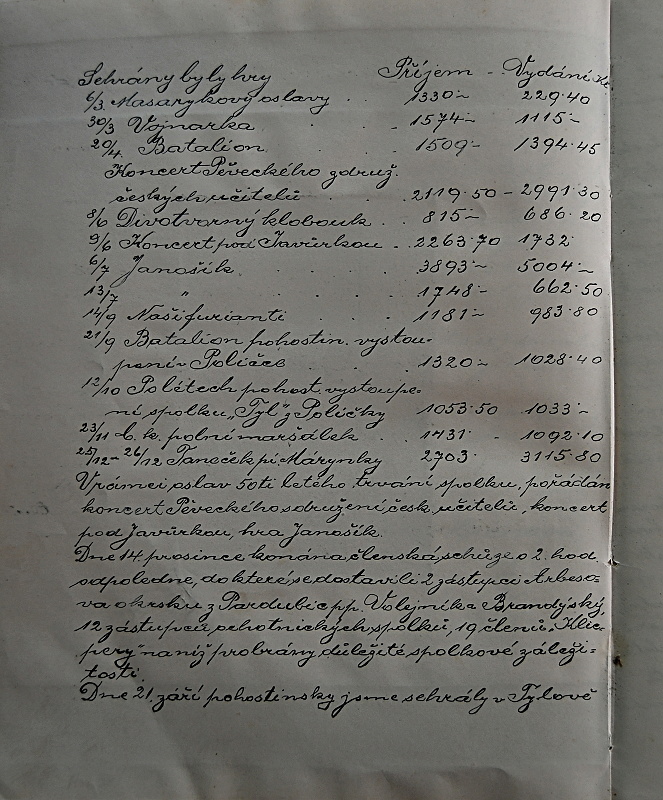 Sehrány byly hry Příjem - Vydání Kč
6/3 Masarykovy oslavy . . 1330·- 229·40
30/3 Vojnarka . . . 1574·- 1115·-
20/4 Batalion . . . 1509·- 1394·45
Koncert Pěveckého zdruš.
českých učitelů . . 2119·50 - 2991·30
8/6 Divotvorný klobouk . . 815·- 686·20
9/6 Koncert pod Javůrkou . . 2263·70 1732·
6/7 Janošík . . . . 3893·- 5004·-
13/7 " . . . . 1748·- 662·50
14/9 Naši furianti . . . 1181·- 983·80
21/9 Batalion pohostin. vystou-
pení v Poličce . . . 1320·- 1028·40
12/10 Po létech pohost. vystoupe-
ní spolku „Tyl" z Poličky 1053·50 1033·-
23/11 C. k. polní maršálek . . 1431· - 1092·10
25/12 - 26/12 Taneček pí Márynky 2703· 3115·80
V rámci oslav 50ti letého trvání spolku, pořádán
koncert Pěveckého sdružení česk. učitelů, koncert
pod Javůrkou, hra Janošík.
Dne 14. prosince konána členská schůze o 2. hod.
odpoledne, do které se dostavili 2 zástupci Arbeso-
va okrsku z Pardubic pp. Volejník a Brandýský
12 zástupců ochotnických spolků, 19 členů „Klic-
pery" na níž probrány důležité spolkové záleži-
tosti.
Dne 21. září pohostinsky jsme sehrály v Tylově